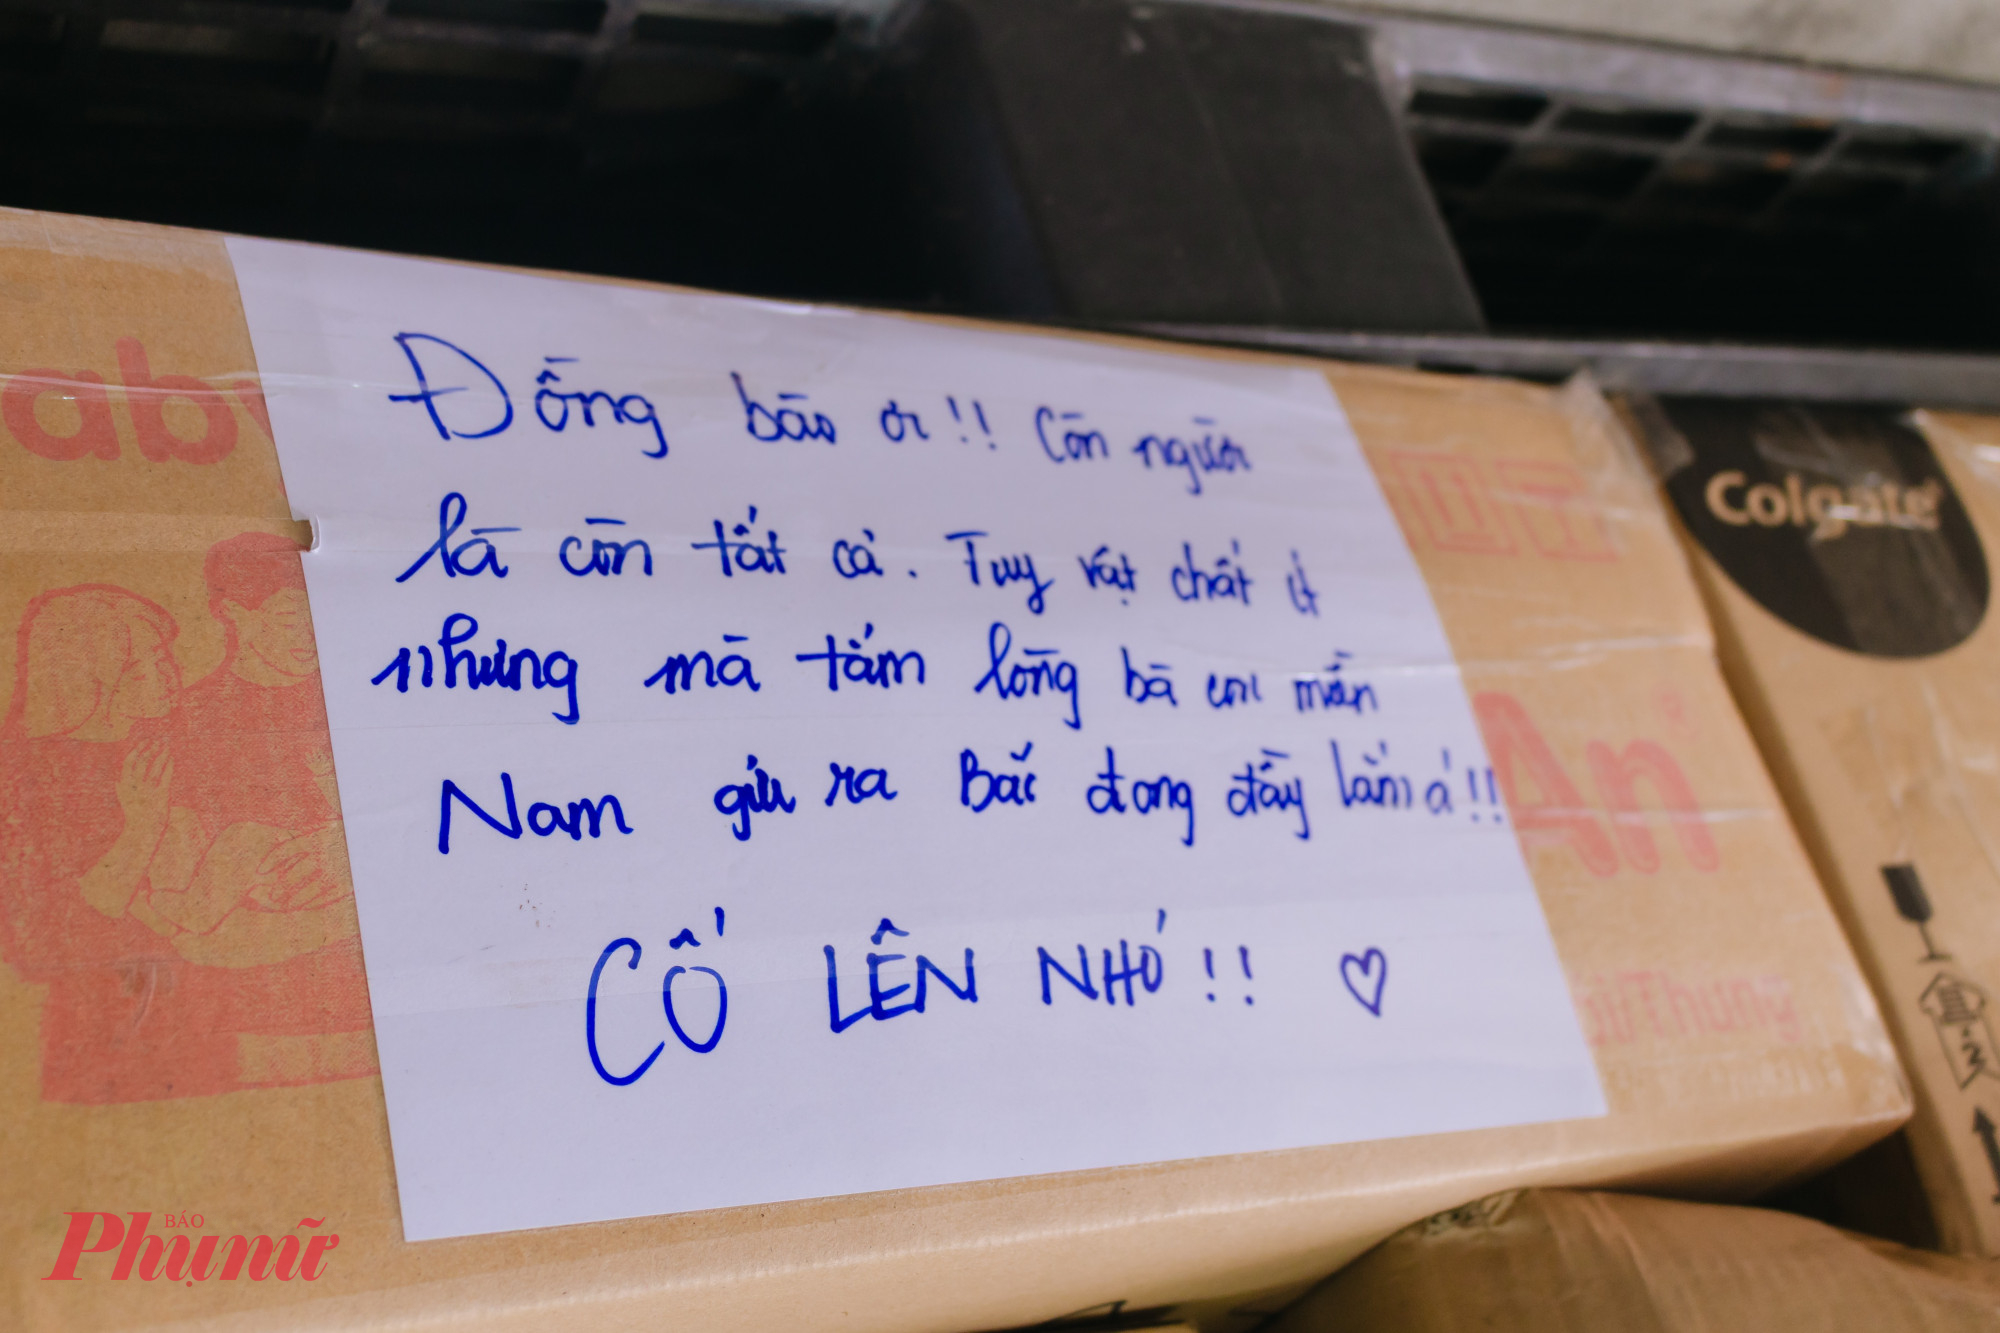 Đồng bào ơi!! Còn người
là còn tất cả. Tuy vật chất ít
nhưng mà tấm lòng bà con miền
Nam gửi ra Bắc đong đầy lắm á!!
CỐ LÊN NHÓ!! ♡
aby
Colgate
An
Thung
2
BÁO
Phụ nữ